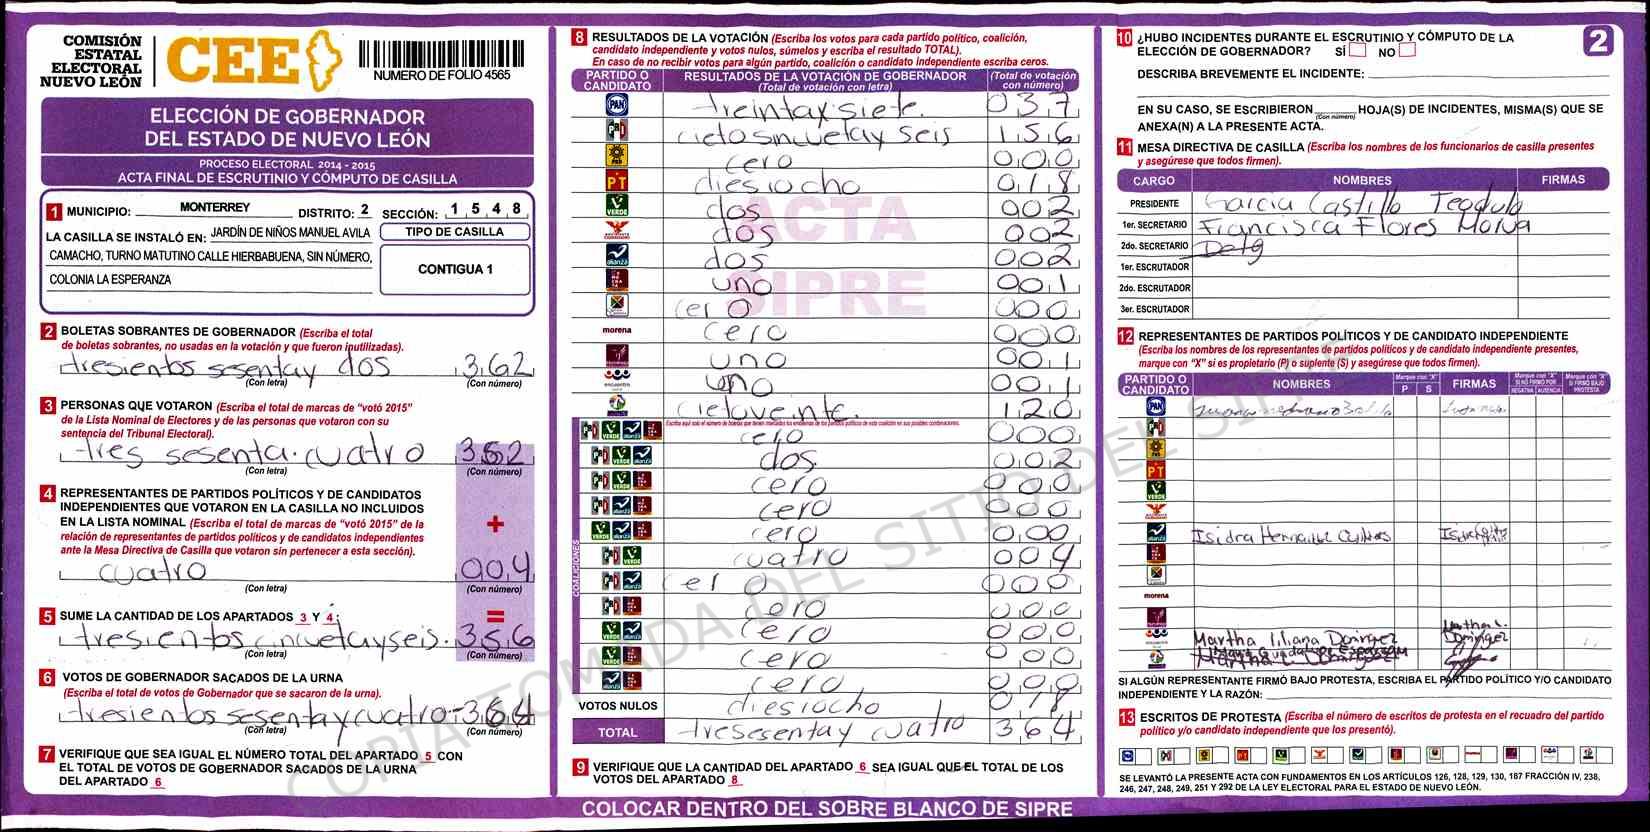 COMISIÓN
ESTATAL
ELECTORAL
NUEVO LEÓN
CEE
NUMERO DE FOLIO 4565
ELECCIÓN DE GOBERNADOR
DEL ESTADO DE NUEVO LEÓN
PROCESO ELECTORAL 2014 - 2015
ACTA FINAL DE ESCRUTINIO Y CÓMPUTO DE CASILLA
1 MUNICIPIO: MONTERREY DISTRITO: 2 SECCIÓN: 1 5 4 8
LA CASILLA SE INSTALÓ EN: JARDÍN DE NIÑOS MANUEL AVILA
CAMACHO, TURNO MATUTINO CALLE HIERBABUENA, SIN NÚMERO,
COLONIA LA ESPERANZA
TIPO DE CASILLA
CONTIGUA 1
2 BOLETAS SOBRANTES DE GOBERNADOR (Escriba el total
de boletas sobrantes, no usadas en la votación y que fueron inutilizadas).
tresientos sesentay dos 362
(Con letra) (Con número)
3 PERSONAS QUE VOTARON (Escriba el total de marcas de "votó 2015"
de la Lista Nominal de Electores y de las personas que votaron con su
sentencia del Tribunal Electoral).
tres sesenta. cuatro 352
(Con letra) (Con número)
4 REPRESENTANTES DE PARTIDOS POLÍTICOS Y DE CANDIDATOS
INDEPENDIENTES QUE VOTARON EN LA CASILLA NO INCLUIDOS
EN LA LISTA NOMINAL (Escriba el total de marcas de "votó 2015" de la
relación de representantes de partidos políticos y de candidatos independientes
ante la Mesa Directiva de Casilla que votaron sin pertenecer a esta sección).
+
cuatro 004
(Con letra) (Con número)
5 SUME LA CANTIDAD DE LOS APARTADOS 3 Y 4.
=
tresientos cincuetayseis. 356
(Con letra) (Con número)
6 VOTOS DE GOBERNADOR SACADOS DE LA URNA
(Escriba el total de votos de Gobernador que se sacaron de la urna).
tresientos sesentaycuatro- 364
(Con letra) (Con número)
7 VERIFIQUE QUE SEA IGUAL EL NÚMERO TOTAL DEL APARTADO 5 CON
EL TOTAL DE VOTOS DE GOBERNADOR SACADOS DE LA URNA
DEL APARTADO 6
8 RESULTADOS DE LA VOTACIÓN (Escriba los votos para cada partido político, coalición,
candidato independiente y votos nulos, súmelos y escriba el resultado TOTAL).
En caso de no recibir votos para algún partido, coalición o candidato independiente escriba ceros.
PARTIDO O
CANDIDATO
RESULTADOS DE LA VOTACIÓN DE GOBERNADOR
(Total de votación con letra)
(Total de votación
con número)
PAN treintaysiete. 037
PRD cietosincuetay seis 156
PRD cero 000
PT diesiocho 018
VERDE dos 002
dos 002
alianza dos 002
uno 001
cero 000
morena cero 000
uno 001
encuentro uno 001
cietoveinte. 120
Escriba aquí solo el número de boletas que tienen marcados los emblemas de los partidos políticos de esta coalición en sus posibles combinaciones.
COALICIONES
cero 000
dos 002
cero 000
cero 000
cero 000
cuatro 004
cero 000
cero 000
cero 000
cero 000
cero 000
VOTOS NULOS diesiocho 018
TOTAL tresesentay cuatro 364
9 VERIFIQUE QUE LA CANTIDAD DEL APARTADO 6 SEA IGUAL QUE EL TOTAL DE LOS
VOTOS DEL APARTADO 8
ACTA
SIPRE
COLOCAR DENTRO DEL SOBRE BLANCO DE SIPRE
2
10 ¿HUBO INCIDENTES DURANTE EL ESCRUTINIO Y CÓMPUTO DE LA
ELECCIÓN DE GOBERNADOR? SÍ NO
DESCRIBA BREVEMENTE EL INCIDENTE:
EN SU CASO, SE ESCRIBIERON HOJA(S) DE INCIDENTES, MISMA(S) QUE SE
(Con número)
ANEXA(N) A LA PRESENTE ACTA.
11 MESA DIRECTIVA DE CASILLA (Escriba los nombres de los funcionarios de casilla presentes
y asegúrese que todos firmen).
CARGO NOMBRES FIRMAS
PRESIDENTE Garcia Castillo Teodulo
1er. SECRETARIO Francisca Flores
2do. SECRETARIO
1er. ESCRUTADOR
2do. ESCRUTADOR
3er. ESCRUTADOR
12 REPRESENTANTES DE PARTIDOS POLÍTICOS Y DE CANDIDATO INDEPENDIENTE
(Escriba los nombres de los representantes de partidos políticos y de candidato independiente presentes,
marque con "X" si es propietario (P) o suplente (S) y asegúrese que todos firmen).
PARTIDO O
CANDIDATO
NOMBRES
Marque con "X"
P S
FIRMAS
Marque con "X"
SI NO FIRMÓ POR
NEGATIVA AUSENCIA
Marque con "X"
SI FIRMÓ BAJO
PROTESTA
PAN
PT
VERDE
alianza Isidra
morena
encuentro Martha liliana Dominguez
SI ALGÚN REPRESENTANTE FIRMÓ BAJO PROTESTA, ESCRIBA EL PARTIDO POLÍTICO Y/O CANDIDATO
INDEPENDIENTE Y LA RAZÓN:
13 ESCRITOS DE PROTESTA (Escriba el número de escritos de protesta en el recuadro del partido
político y/o candidato independiente que los presentó).
SE LEVANTÓ LA PRESENTE ACTA CON FUNDAMENTOS EN LOS ARTÍCULOS 126, 128, 129, 130, 187 FRACCIÓN IV, 238,
246, 247, 248, 249, 251 Y 292 DE LA LEY ELECTORAL PARA EL ESTADO DE NUEVO LEÓN.
COPIA TOMADA DEL SITIO DEL SIPRE